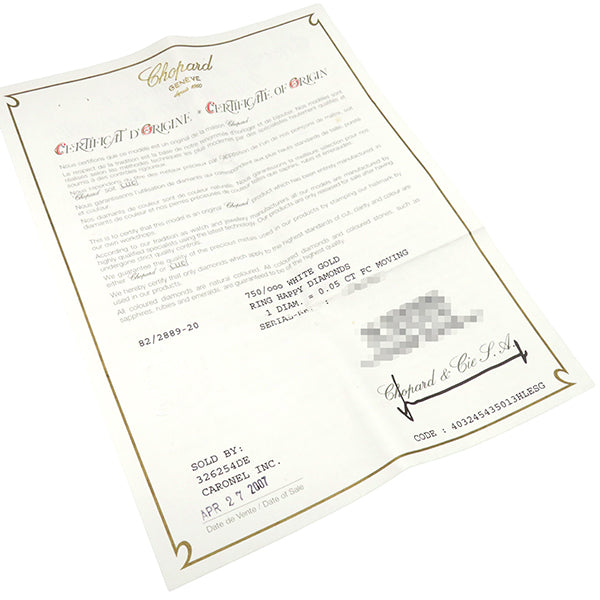 Chopard
GENÈVE
depuis 1860
CERTIFICAT D'ORIGINE * CERTIFICATE OF ORIGIN
Nous certifions que ce modèle est un original de la maison Chopard
Le respect de la tradition est la base de notre
soit L.U.C
Nous garantissons l'utilisation de diamants qui correspondent aux plus hauts standards de taille, pureté
et couleur.
Nos diamants de couleur sont de couleur naturelle. Nous garantissons la meilleure sélection pour nos
diamants de couleur et nos pierres précieuses de couleur telles que saphirs, rubis et émeraudes.
This is to certify that this model is an original Chopard product which has been entirely manufactured in
our own workshops.
According to our tradition as watch and jewellery manufacturers all our models are manufactured by
highly qualified specialists using the latest technology. Our products are only released for sale after having
undergone strict quality controls.
We guarantee the quality of the precious metals used in our products for stamping our hallmark by
either Chopard or L.U.C
We hereby certify that only diamonds which apply to the highest standards of cut, clarity and colour are
used in our products.
All coloured diamonds are natural coloured. All coloured diamonds and coloured stones, such as
sapphires, rubies and emeralds, are guaranteed to be of the highest quality.
82/2889-20
750/ooo WHITE GOLD
RING HAPPY DIAMONDS
1 DIAM. = 0.05 CT FC MOVING
Chopard & Cie S.A.
CODE : 403245435013HLESG
SOLD BY:
326254DE
CARONEL INC.
APR 27 2007
Date de Vente / Date of Sale